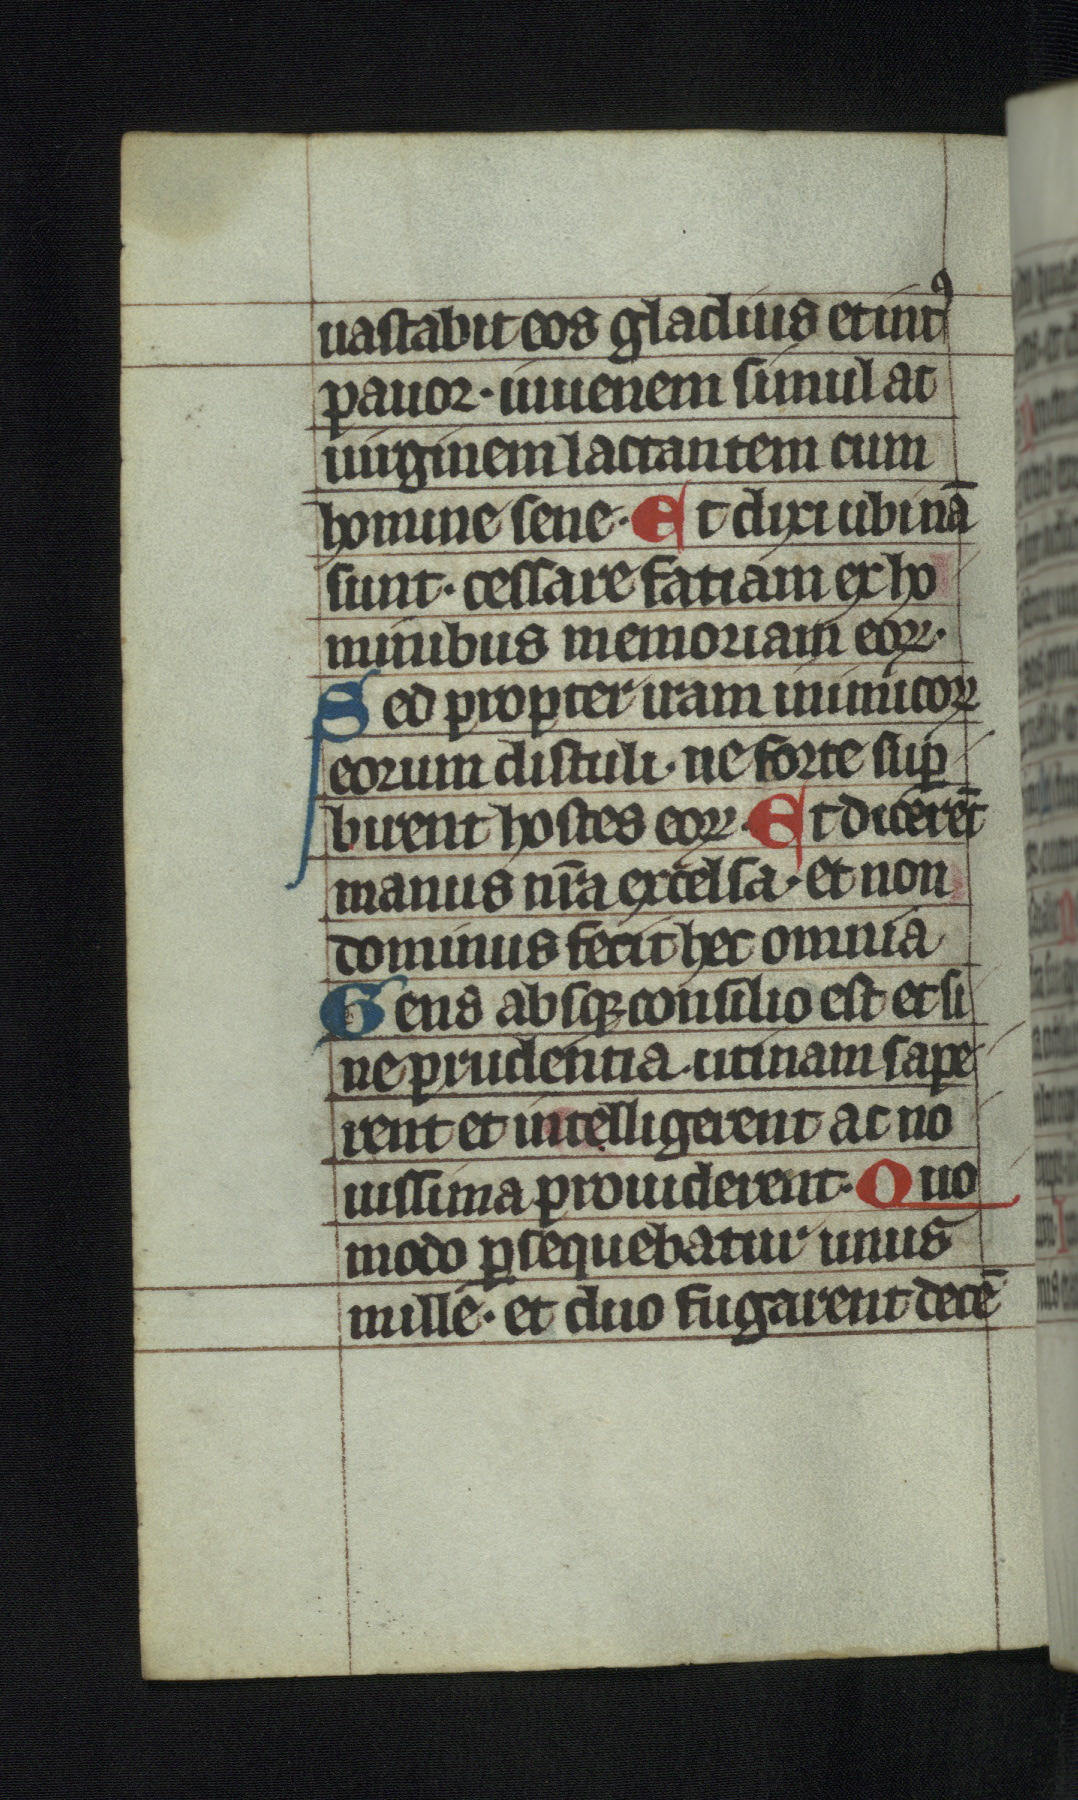 uastabit eos gladius et intꝰ
pauor · iuuenem simul ac
uirginem lactantem cum
homine sene · Et dixi ubi nā
sunt · cessare fatiam ex ho
minibus memoriam eoꝝ ·
Sed propter iram inimicoꝝ
eorum distuli · ne forte suꝑ
birent hostes eoꝝ · Et dicerēt
manus nr̄a excelsa · et non
dominus fecit hec omnia
Gens absqꝫ consilio est et si
ne prudentia · utinam sape
rent et intelligerent ac no
uissima prouiderent · Quo
modo ꝑsequebatur unus
mille · et duo fugarent decē